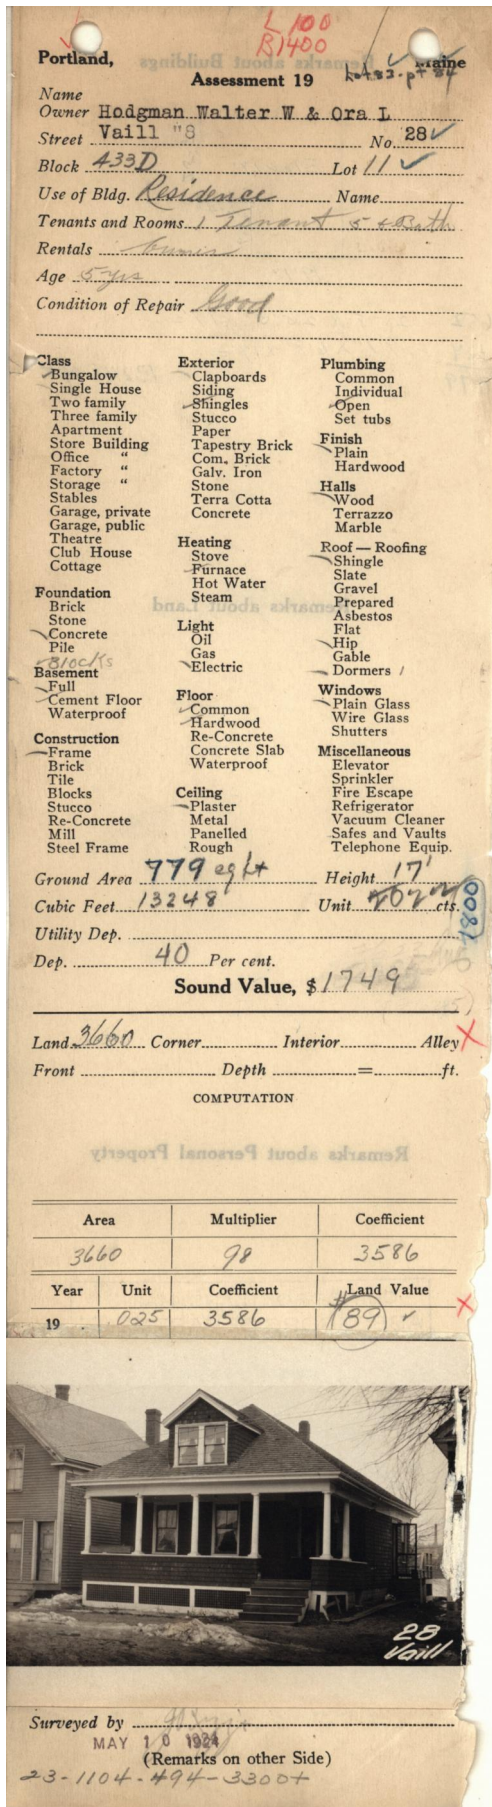 L 100
B 1400
Portland, Maine
Assessment 19 Lot 83-pt 84
Name
Owner Hodgman Walter W & Ora L
Street Vaill "8 No. 28
Block 433D Lot 11
Use of Bldg. Residence Name
Tenants and Rooms 1 Tenant 5 + Bath
Rentals
Age 5 yrs
Condition of Repair Good
Class
Bungalow
Single House
Two family
Three family
Apartment
Store Building
Office "
Factory "
Storage "
Stables
Garage, private
Garage, public
Theatre
Club House
Cottage
Foundation
Brick
Stone
Concrete
Pile
Blocks
Basement
Full
Cement Floor
Waterproof
Construction
Frame
Brick
Tile
Blocks
Stucco
Re-Concrete
Mill
Steel Frame
Exterior
Clapboards
Siding
Shingles
Stucco
Paper
Tapestry Brick
Com. Brick
Galv. Iron
Stone
Terra Cotta
Concrete
Heating
Stove
Furnace
Hot Water
Steam
Light
Oil
Gas
Electric
Floor
Common
Hardwood
Re-Concrete
Concrete Slab
Waterproof
Ceiling
Plaster
Metal
Panelled
Rough
Plumbing
Common
Individual
Open
Set tubs
Finish
Plain
Hardwood
Halls
Wood
Terrazzo
Marble
Roof — Roofing
Shingle
Slate
Gravel
Prepared
Asbestos
Flat
Hip
Gable
Dormers 1
Windows
Plain Glass
Wire Glass
Shutters
Miscellaneous
Elevator
Sprinkler
Fire Escape
Refrigerator
Vacuum Cleaner
Safes and Vaults
Telephone Equip.
Ground Area 779 Height 17'
Cubic Feet 13248 Unit cts.
1800
Utility Dep.
Dep. 40 Per cent.
Sound Value, $ 1749
Land 3660 Corner Interior Alley
Front Depth = ft.
COMPUTATION
Remarks about Personal Property
Area Multiplier Coefficient
3660 98 3586
Year Unit Coefficient Land Value
19 025 3586 $89
28
Vaill
Surveyed by
MAY 10 1924
(Remarks on other Side)
23-1104-494-3300+